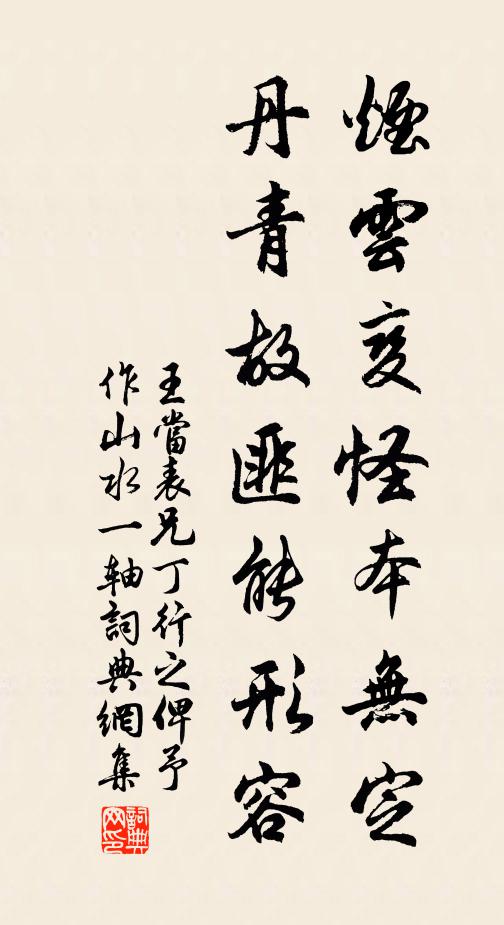 煙雲变怪本無定
丹青故匪能形容
王當表兄丁行之俾予
作山水一軸詞典網集
詞典
网印